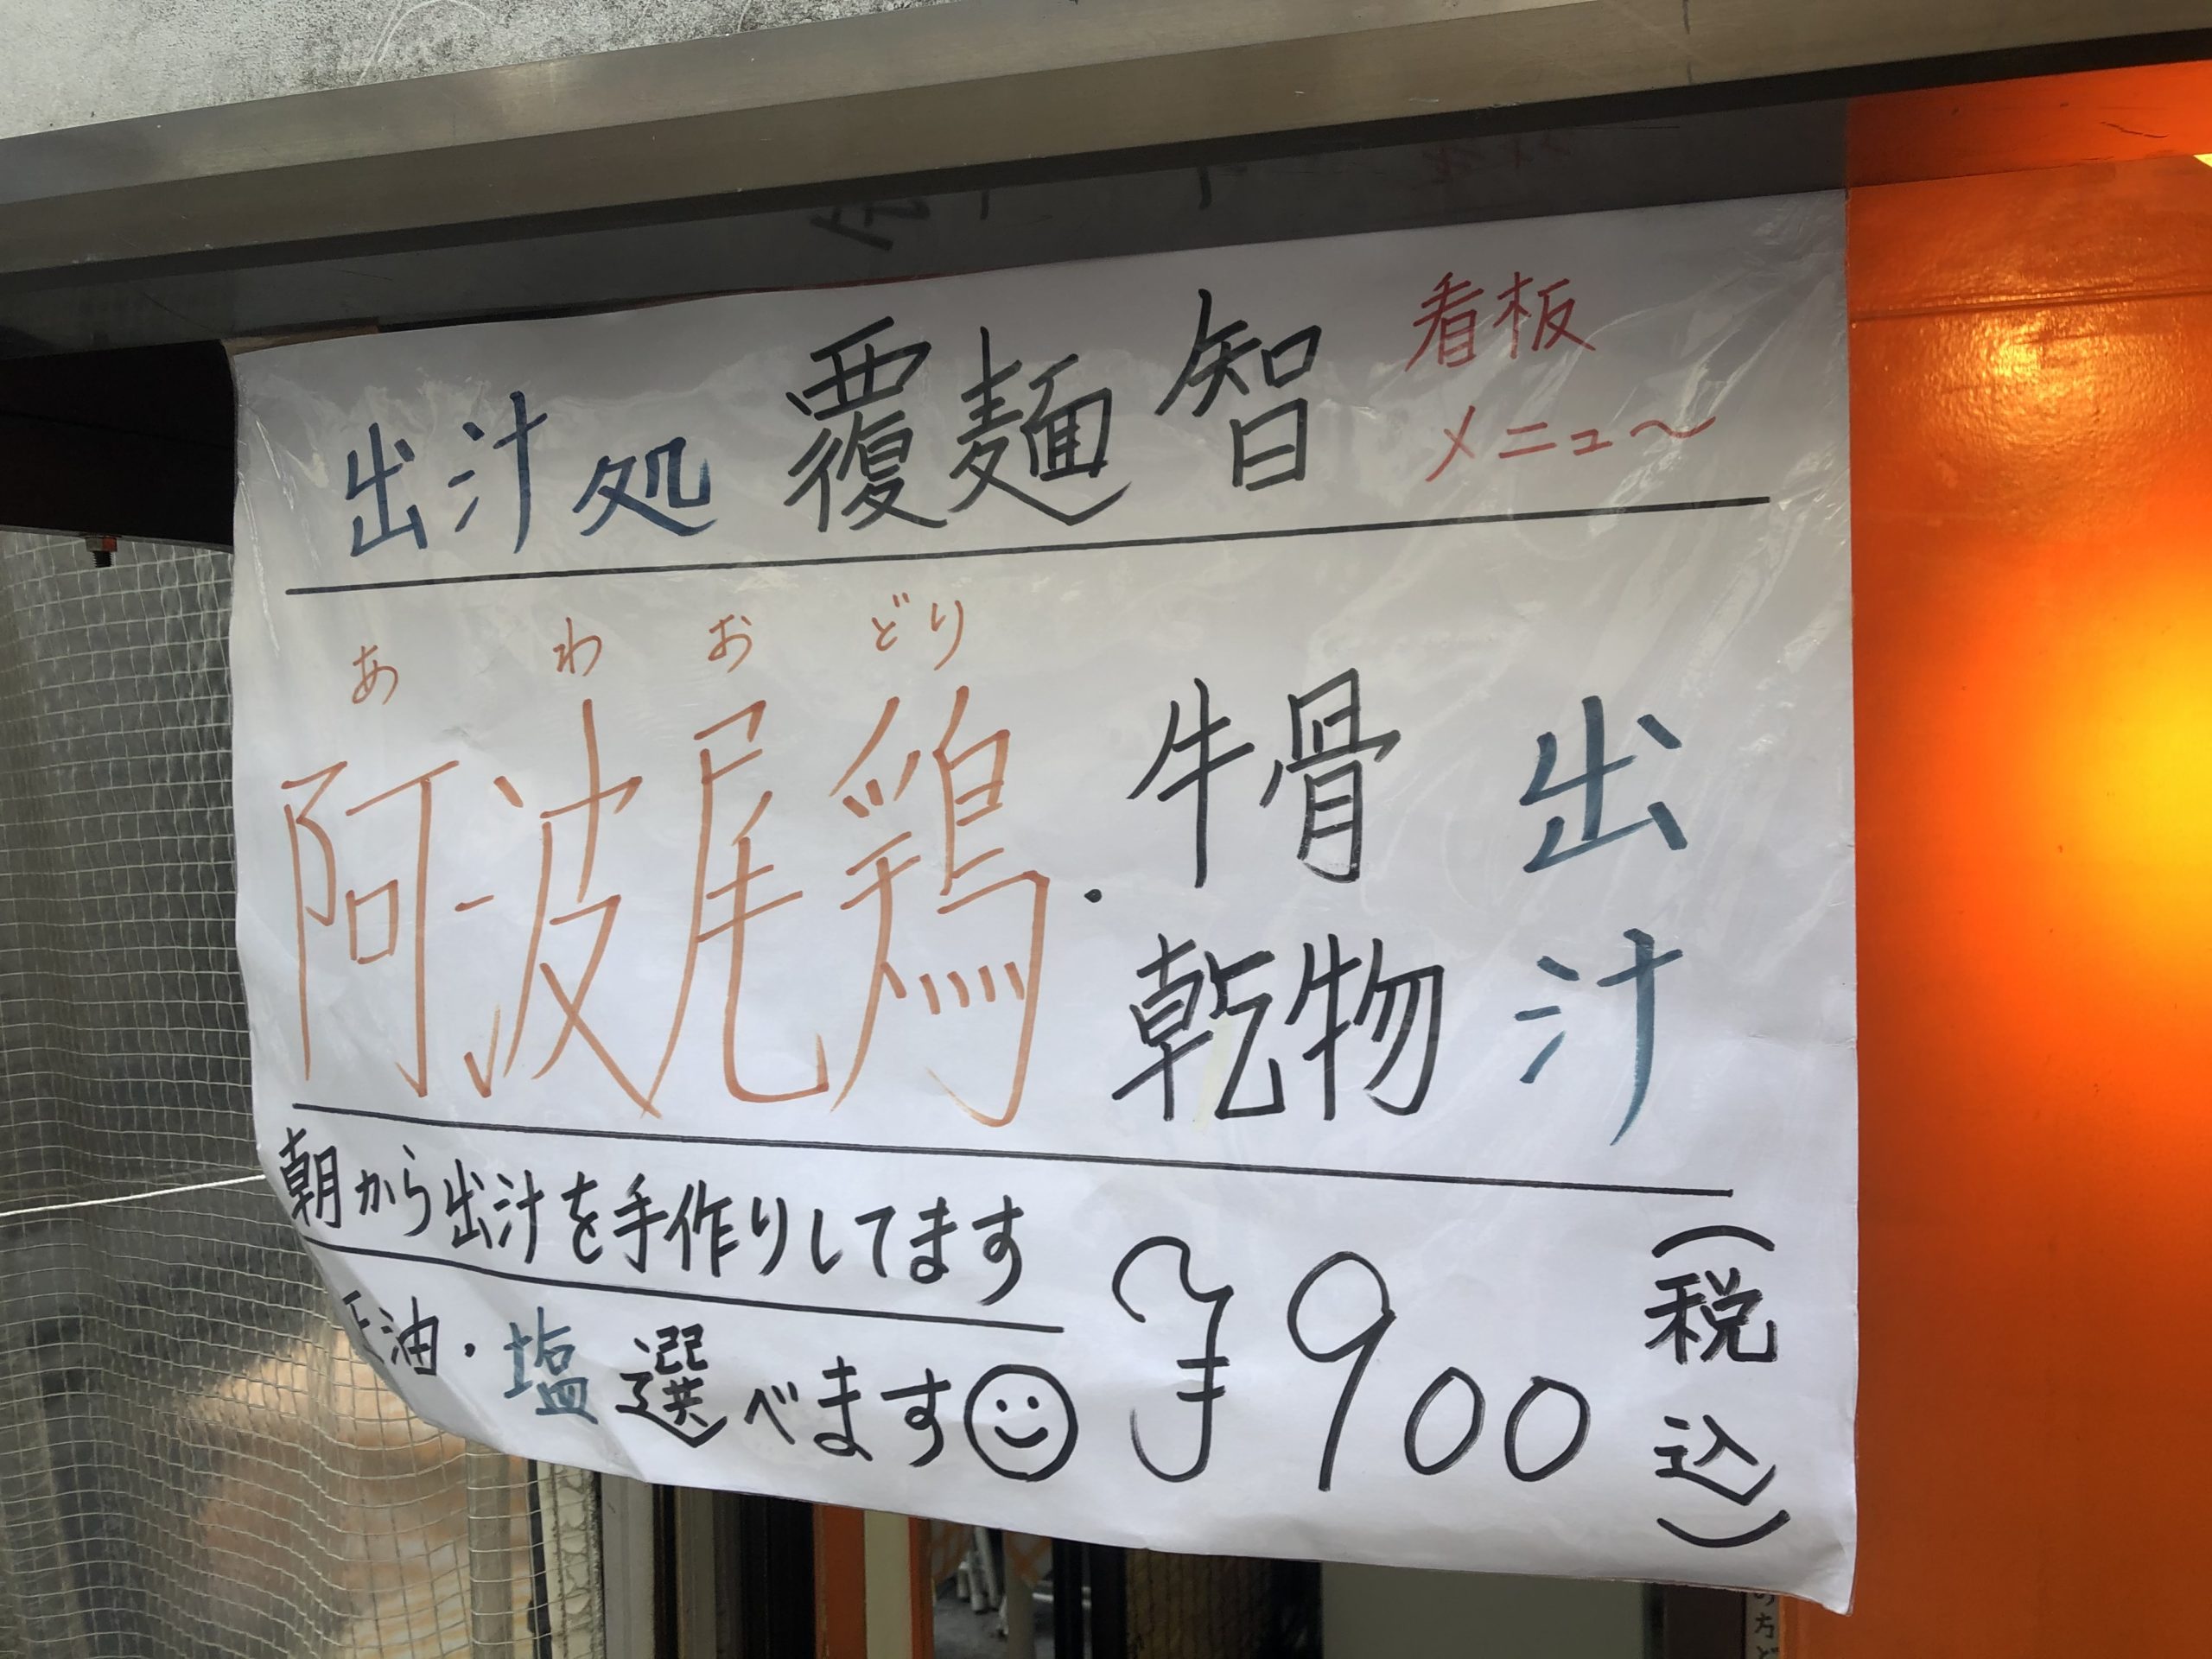 出汁処 覆麺 智 看板
メニュ〜
あわおどり
阿波尾鶏・牛骨 出汁
乾物
朝から出汁を手作りしてます
油・塩 選べます
¥900 (税込)